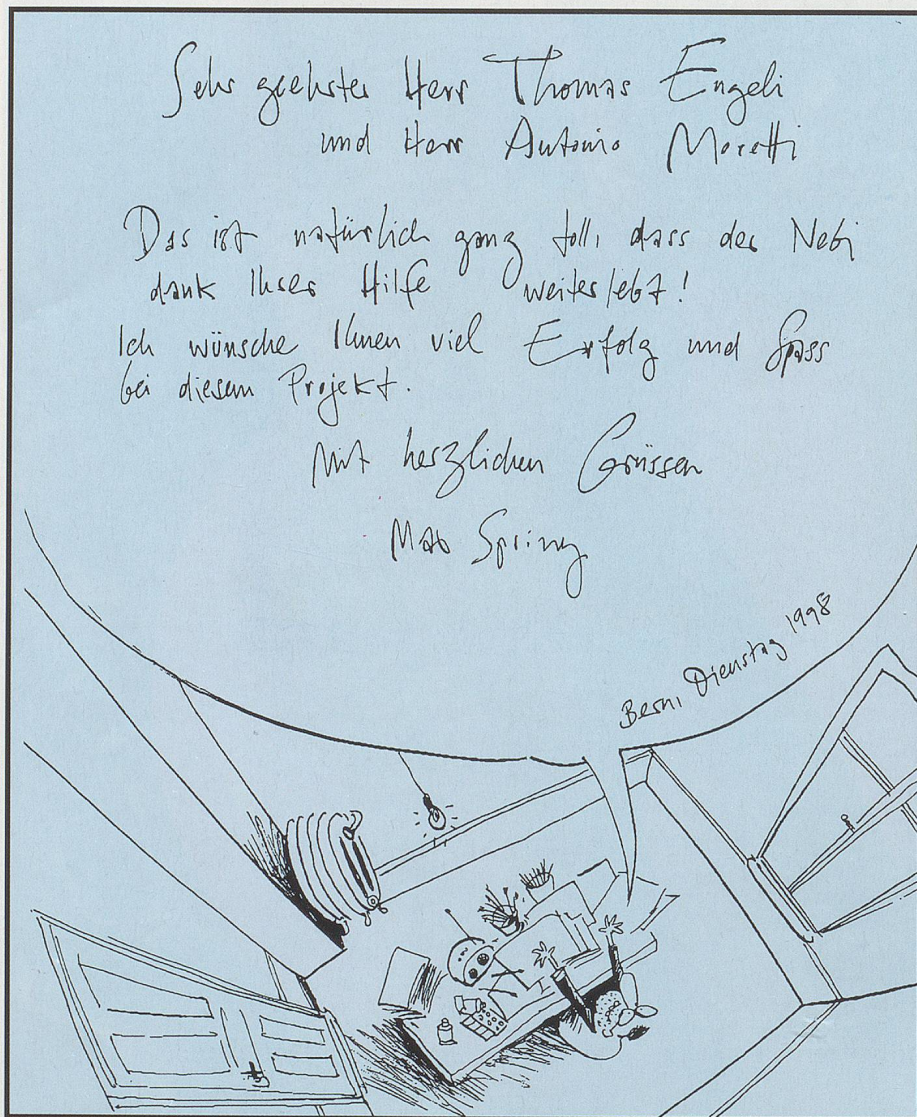 Sehr geehrter Herr Thomas Engeli
und Herr Antonio Moretti
Das ist natürlich ganz toll, dass der Nebi
dank Ihrer Hilfe weiterlebt!
Ich wünsche Ihnen viel Erfolg und Spass
bei diesem Projekt.
Mit herzlichen Grüssen
Max Spring
Bern, Dienstag 1998